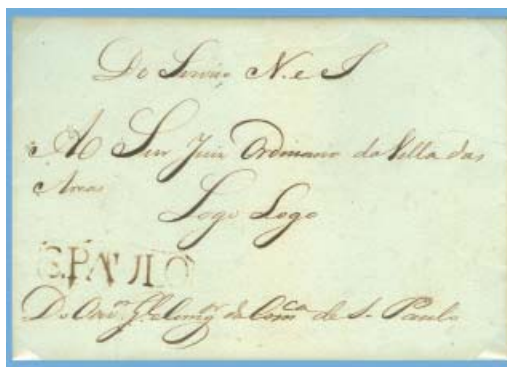 Do Serviço N. e S
Ao Snr Juiz Ordinario da Villa das
Areas
Logo Logo
S. PAULO
Do Ouv.or de Com.ca de S. Paulo